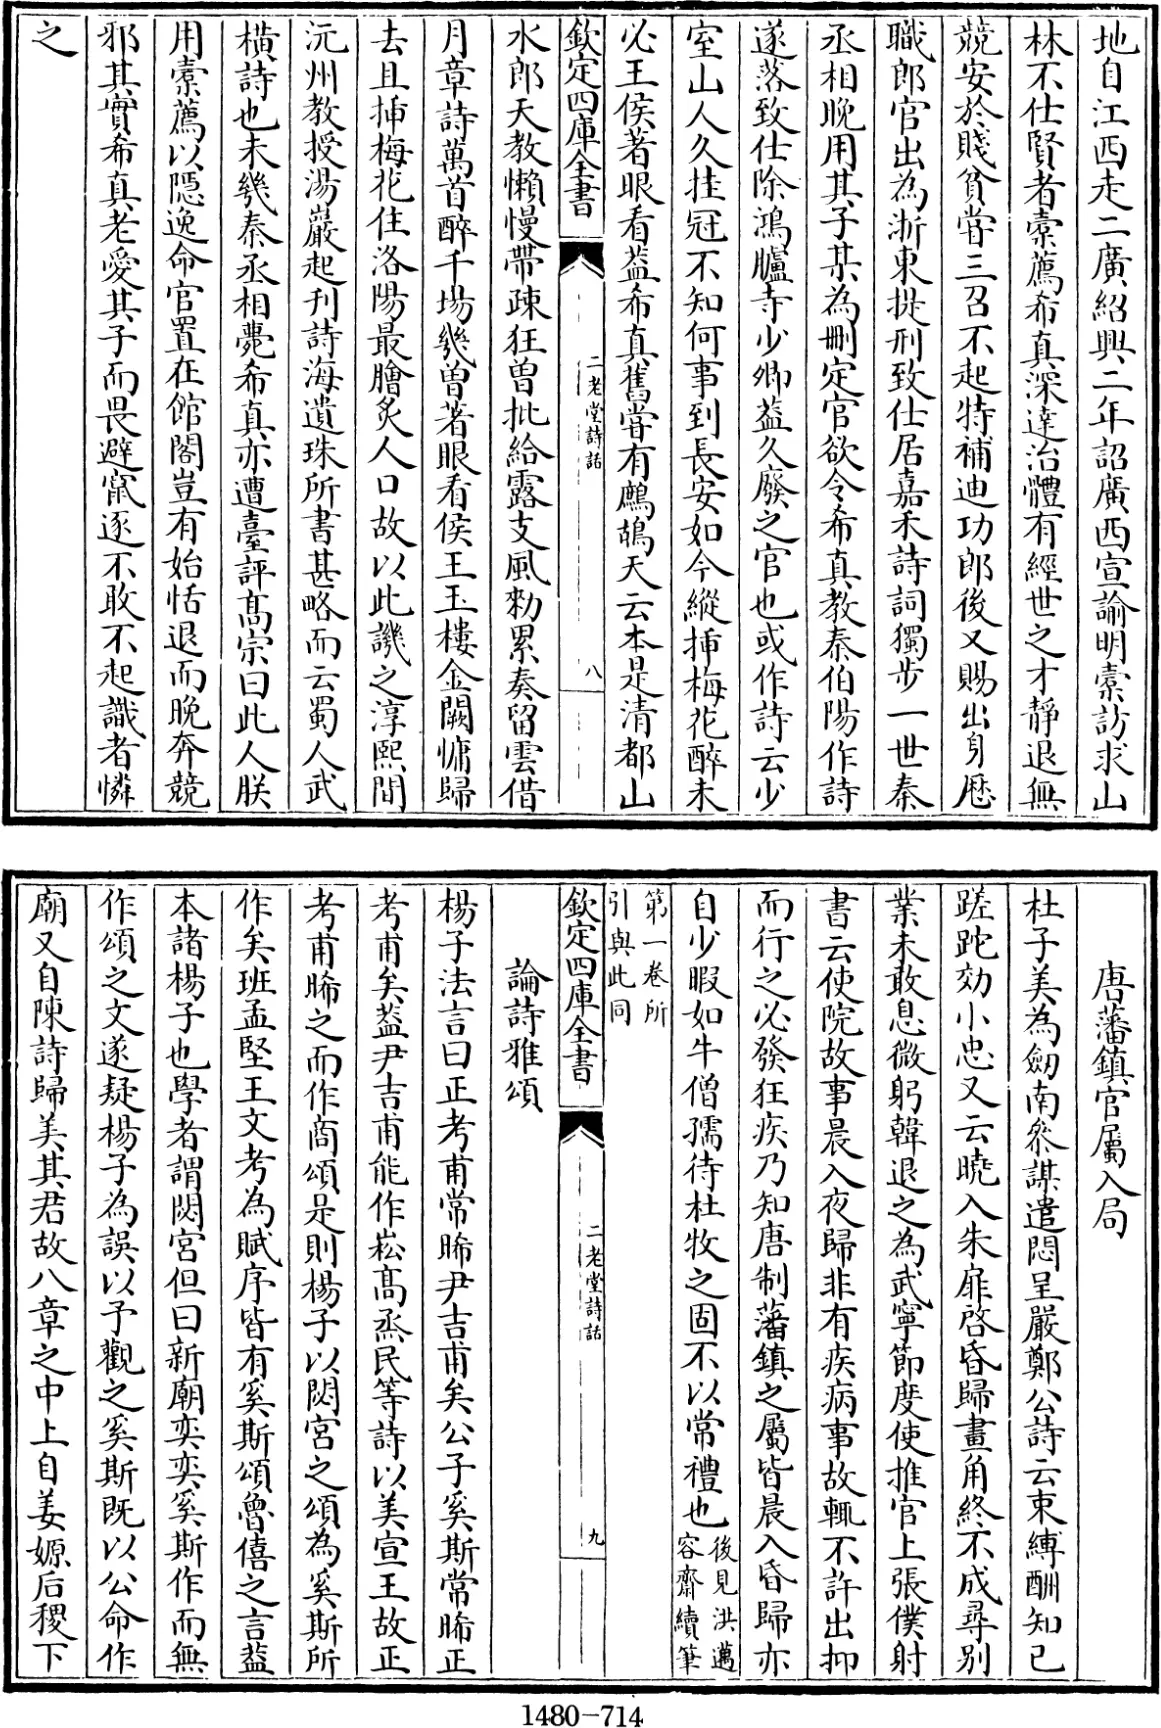 地自江西走二廣紹興二年詔廣西宣諭明槖訪求山
林不仕賢者槖薦希真深達治體有經世之才靜退無
競安於賤貧嘗三召不起特補迪功郎後又賜出身歷
職郎官出為浙東提刑致仕居嘉禾詩詞獨步一世秦
丞相晚用其子某為刪定官欲令希真教秦伯陽作詩
遂落致仕除鴻臚寺少卿葢久廢之官也或作詩云少
室山人久挂冠不知何事到長安如今縱插梅花醉未
必王侯著眼看葢希真舊嘗有鷓鴣天云本是清都山
欽定四庫全書
二老堂詩話
八
水郎天教懶慢帶疎狂曾批給露支風勑累奏留雲借
月章詩萬首醉千塲幾曾著眼看侯王玉樓金闕慵歸
去且插梅花住洛陽最膾炙人口故以此譏之淳熙間
沅州教授湯巖起刊詩海遺珠所書甚略而云蜀人武
橫詩也未幾秦丞相薨希真亦遭臺評高宗曰此人朕
用槖薦以隱逸命官置在館閣豈有始恬退而晚奔競
邪其實希真老愛其子而畏避竄逐不敢不起識者憐
之
唐藩鎮官屬入局
杜子美為劒南叅謀遣悶呈嚴鄭公詩云束縛酬知已
蹉跎效小忠又云曉入朱扉啓昏歸畫角終不成尋別
業未敢息微躬韓退之為武寧節度使推官上張僕射
書云使院故事晨入夜歸非有疾病事故輒不許出抑
而行之必發狂疾乃知唐制藩鎮之屬皆晨入昏歸亦
自少暇如牛僧孺待杜牧之固不以常禮也後見洪邁
容齋續筆
第一卷所
引與此同
欽定四庫全書
二老堂詩話
九
論詩雅頌
楊子法言曰正考甫常睎尹吉甫矣公子奚斯常睎正
考甫矣葢尹吉甫能作崧高烝民等詩以美宣王故正
考甫睎之而作商頌是則楊子以閟宮之頌為奚斯所
作矣班孟堅王文考為賦序皆有奚斯頌魯僖之言葢
本諸楊子也學者謂閟宮但曰新廟奕奕奚斯作而無
作頌之文遂疑楊子為誤以予觀之奚斯既以公命作
廟又自陳詩歸美其君故八章之中上自姜嫄后稷下
1480-714